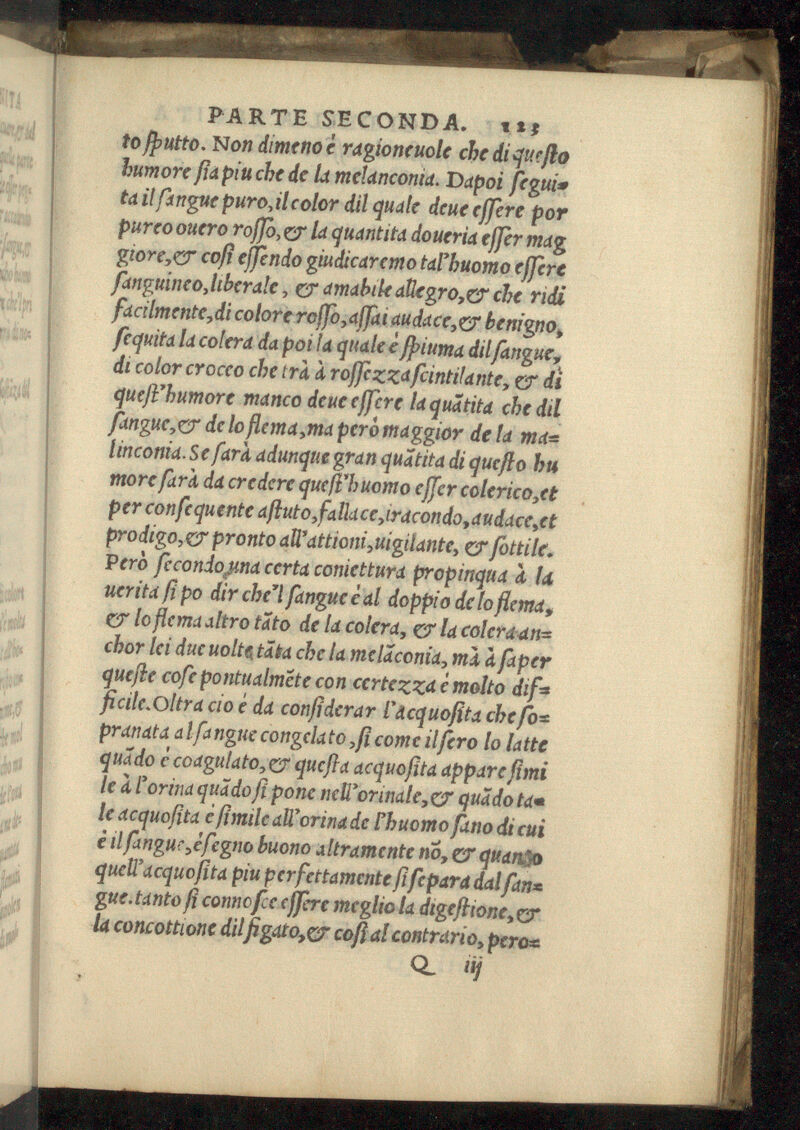 PARTE SECONDA. 123
to ſputto. Non dimeno è ragioneuole che di queſto
humore ſia piu che de la melanconia. Dapoi ſegui=
ta il ſangue puro, il color dil quale deue eſſere por
pureo ouero roſſo, & la quantita doueria eſſer mag
giore, & coſi eſſendo giudicaremo tal'huomo eſſere
ſanguineo, liberale, & amabile allegro, & che ridi
facilmente, di colore roſſo, aſſai audace, & benigno,
ſequita la colera da poi la quale è ſpiuma dil ſangue,
di color croceo che trà à roſſezza ſcintilante, & di
queſt'humore manco deue eſſere la quãtita che dil
ſangue, & de lo flema, ma però maggior de la ma=
linconia. Se farà adunque gran quãtita di queſto hu
more farà da credere queſt'huomo eſſer colerico, et
per conſequente aſtuto, fallace, iracondo, audace, et
prodigo, & pronto all'attioni, uigilante, & ſottile.
Però ſecondo una certa coniettura propinqua à la
uerità ſi po dir che'l ſangue è al doppio de lo flema,
& lo flema altro tãto de la colera, & la colera an=
chor lei due uolte tãta che la melãconia, mà à ſaper
queſte coſe pontualmẽte con certezza è molto dif=
ficile. Oltra cio è da conſiderar l'acquoſita che ſo=
pranata al ſangue congelato, ſi come il ſero lo latte
quãdo è coagulato, & queſta acquoſita appare ſimi
le à l'orina quãdo ſi pone nell'orinale, & quãdo ta=
le acquoſita è ſimile all'orina de l'huomo ſano di cui
è il ſangue, è ſegno buono altramente nõ, & quanto
quell'acquoſita piu perfettamente ſi ſepara dal ſan=
gue. tanto ſi connoſce eſſere meglio la digeſtione, &
la concottione dil figato, & coſi al contrario, pero=
Q iij